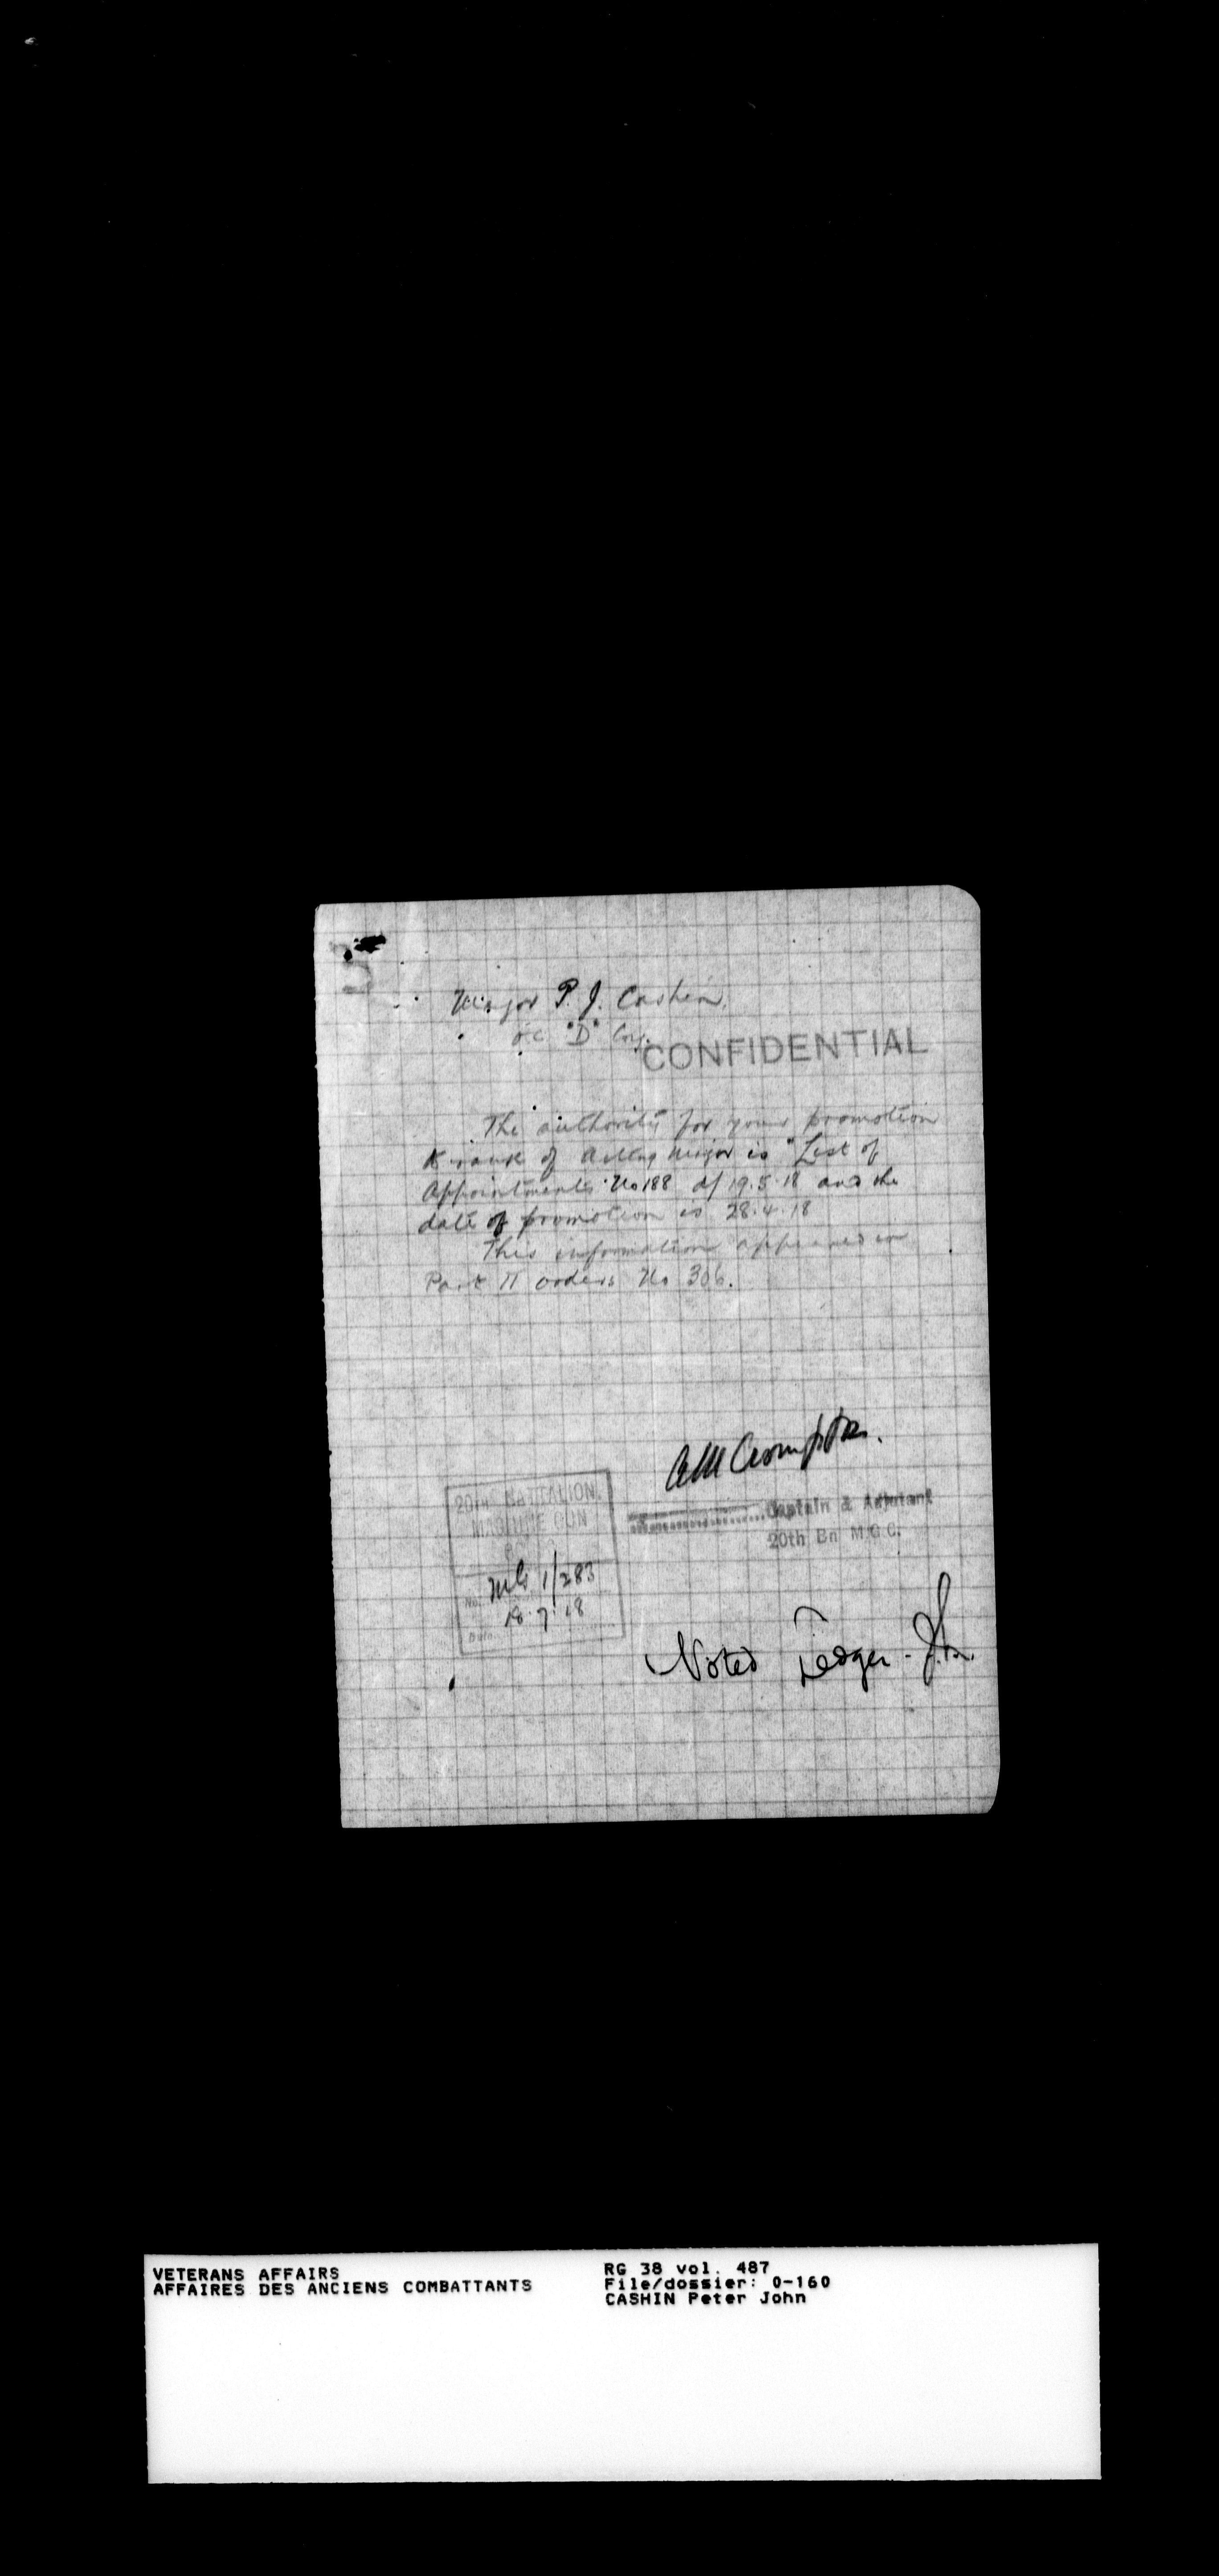 Major P. J. Cashin.
o.c. "D" Coy.
CONFIDENTIAL
The authority for your promotion
to rank of acting major is "List of
Appointments" No 188 of 19.5.18 and the
date of promotion is 28.4.18
This information appeared in
Part II orders No 306.
Crompton.
Captain & Adjutant
20th Bn M.G.C.
20TH BATTALION,
MACHINE GUN
No. 1/283
Date 18.7.18
Noted Ledger
VETERANS AFFAIRS
AFFAIRES DES ANCIENS COMBATTANTS
RG 38 vol. 487
File/dossier: 0-160
CASHIN Peter John